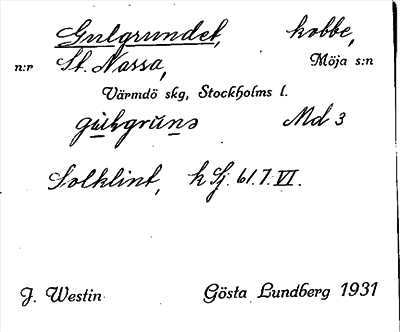 Gulgrundet, kobbe,
n:r St. Nassa, Möja s:n
Värmdö skg, Stockholms l.
gu̲lsgru̲ns Md 3
Solklint, k Sj. 61.7.VI.
J. Westin Gösta Lundberg 1931